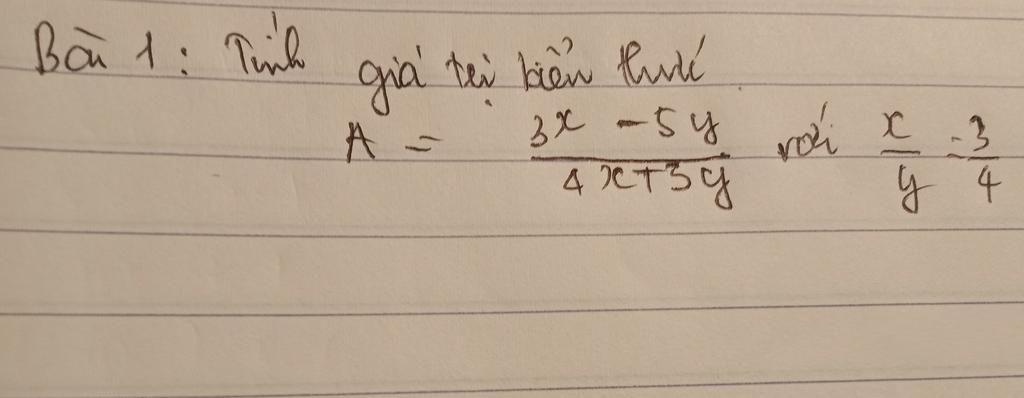 Bài 1: Tính giá trị biểu thức
A = (3x - 5y)/(4x + 3y) với x/y = 3/4